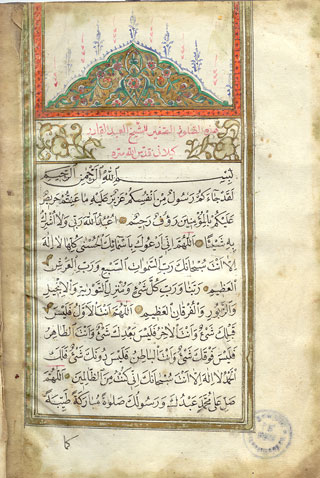 الصلوات الصغير للشيخ العبد القادر
كيلاني قدس الله سره
بِسْمِ اللهِ الرَّحْمٰنِ الرَّحِيمِ
لقد جاءكم رسول من انفسكم عزيز عليه ما عنتم حريص
عليكم بالمؤمنين رؤف رحيم اعبد الله ربي ولا اشرك
به شيئا اللهم اني ادعوك باسمائك الحسنى كلها لا اله
الا انت سبحانك رب السموات السبع ورب العرش
العظيم ربنا ورب كل شيء ومنزل التورية والانجيل
والزبور والفرقان العظيم اللهم انت الاول فليس
قبلك شيء وانت الاخر فليس بعدك شيء وانت الظاهر
فليس فوقك شيء وانت الباطن فليس دونك شيء فلك
الحمد لا اله الا انت سبحانك اني كنت من الظالمين اللهم
صل على محمد عبدك ورسولك صلوة مباركة طيبة
كما